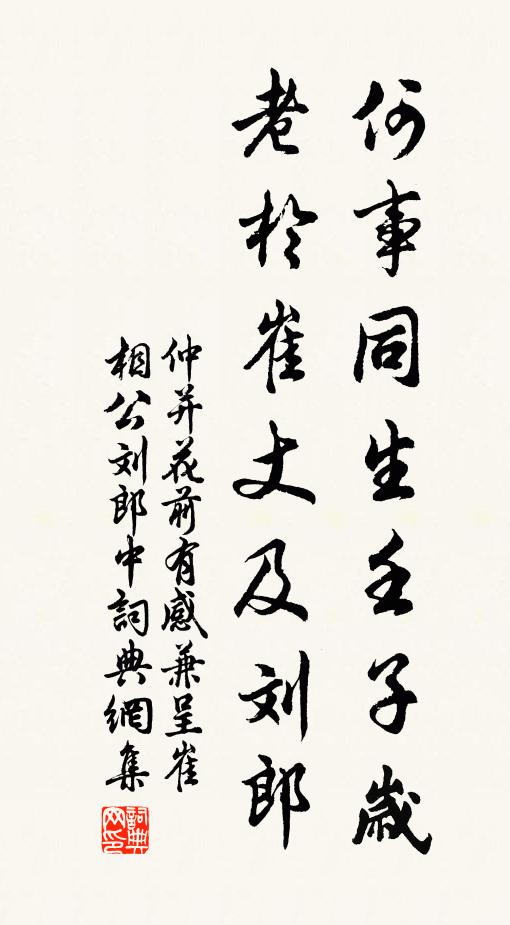 何事同生壬子歲
老於崔丈及刘郎
仲并花前有感兼呈崔
相公刘郎中詞典網集
詞典網印